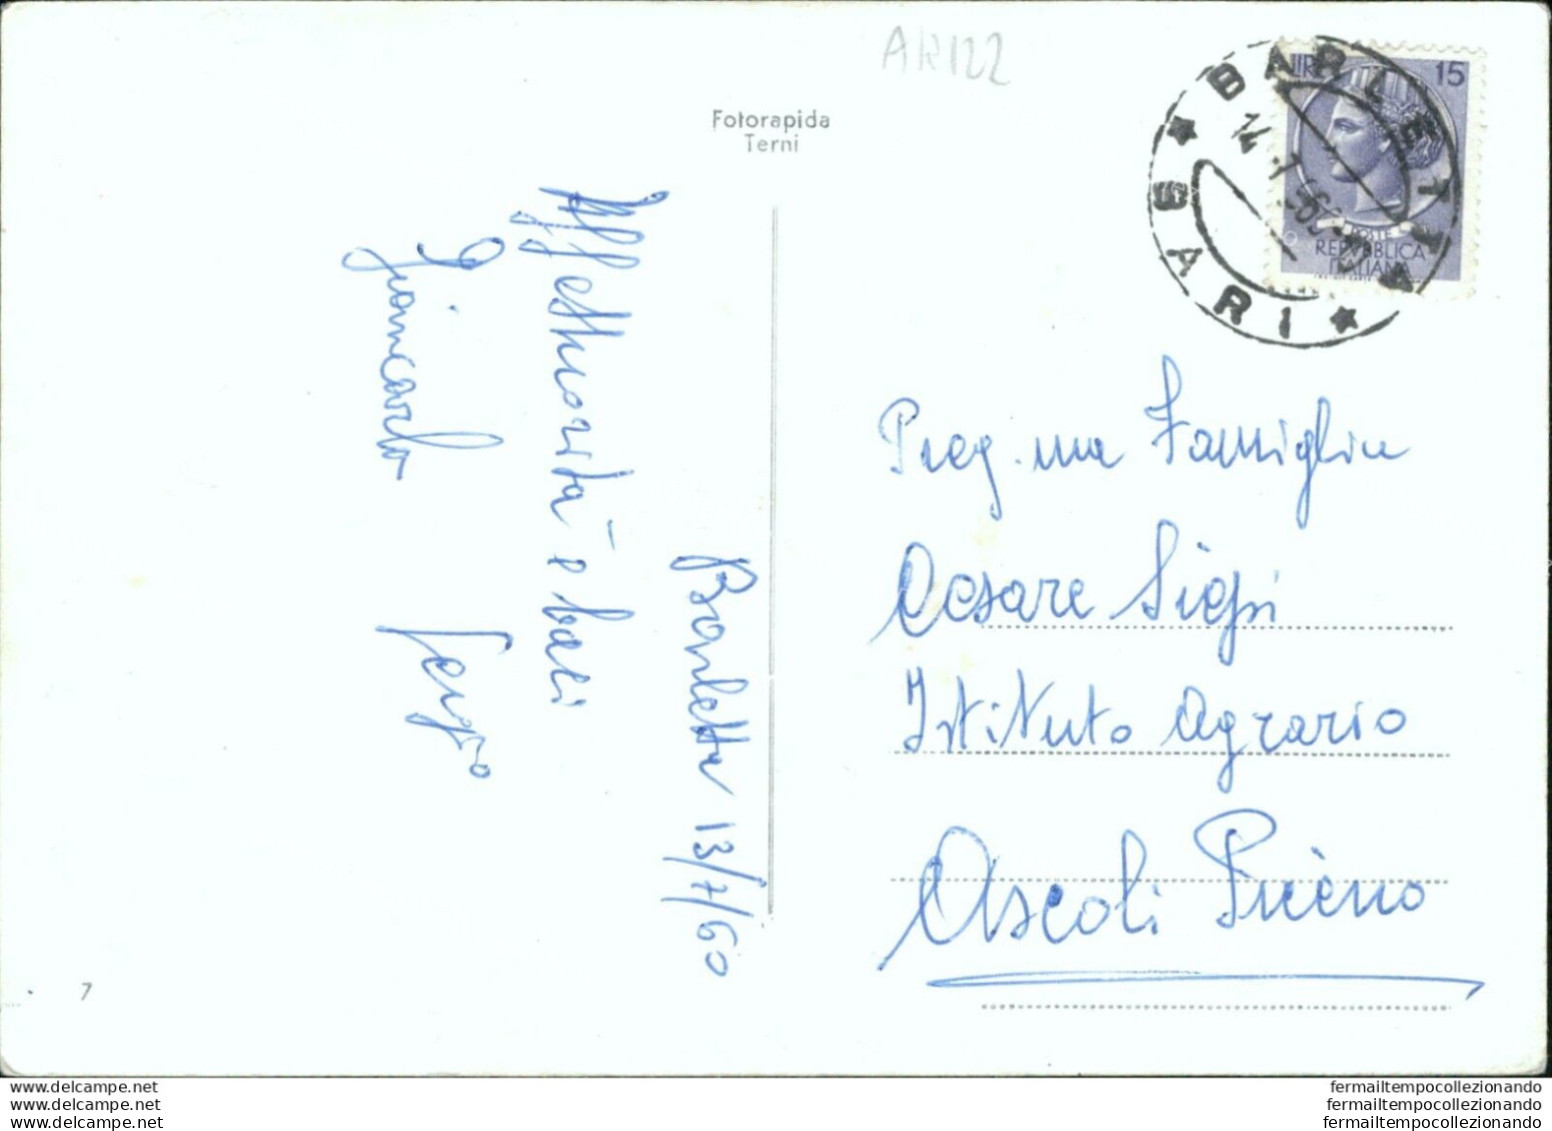 AR122
Fotorapida
Terni
LIRE 15
POSTE
REPUBBLICA
ITALIANA
BARLETTA
BARI
Barletta 13/7/60
Affettuosità e baci
Giancarlo Sergio
Preg.ma Famiglia
Cesare
Istituto Agrario
Ascoli Piceno
7
www.delcampe.net
www.delcampe.net
www.delcampe.net
fermailtempocollezionando
fermailtempocollezionando
fermailtempocollezionando